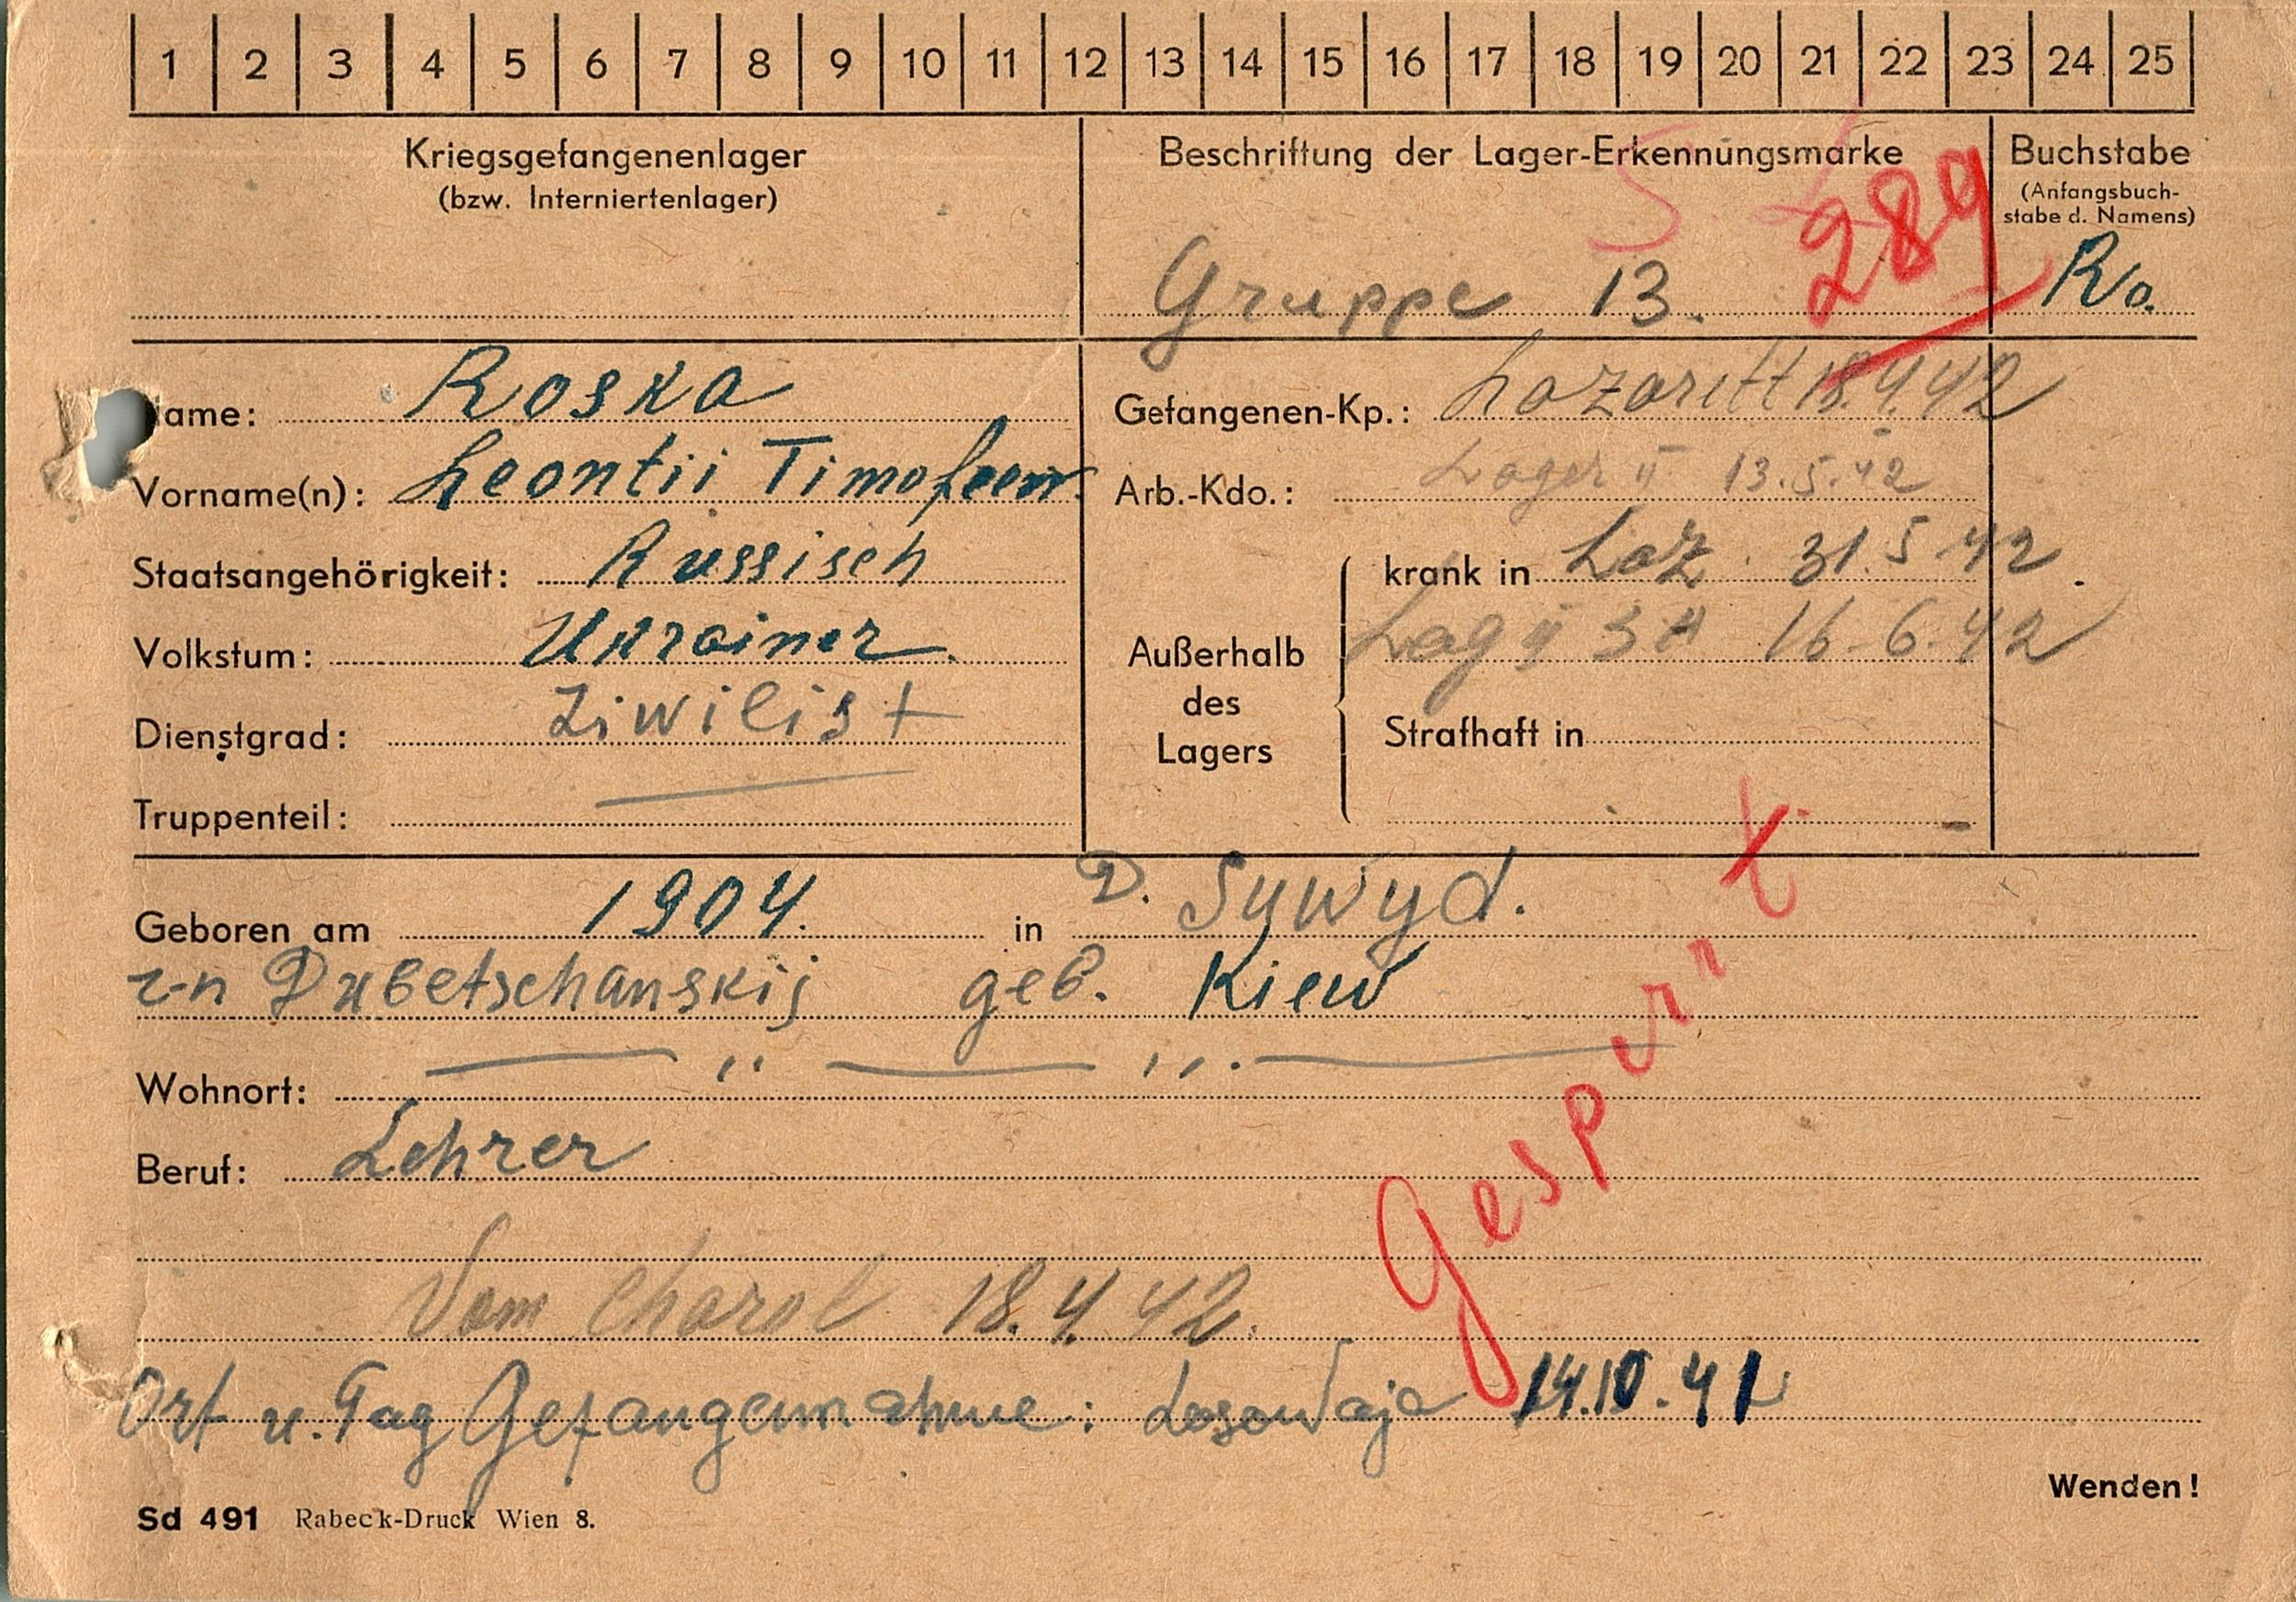 1 2 3 4 5 6 7 8 9 10 11 12 13 14 15 16 17 18 19 20 21 22 23 24 25
Kriegsgefangenenlager
(bzw. Interniertenlager)
Beschriftung der Lager-Erkennungsmarke
Gruppe 13. 289
Buchstabe
(Anfangsbuch-
stabe d. Namens)
Ro.
Name: Roska
Vorname(n): Leontii Timofeew.
Staatsangehörigkeit: Russisch
Volkstum: Ukrainer.
Dienstgrad: Ziwilist
Truppenteil:
Gefangenen-Kp.: Lazarett 18.4.42
Arb.-Kdo.: Lager II 13.5.42
Außerhalb
des
Lagers
krank in Laz. 31.5.42.
Lag II 3A 16.6.42
Strafhaft in
Geboren am 1904. in D. Sywyd.
r-n Dubetschanskij geb. Kiew
Wohnort: — ,, — ,,. —
Beruf: Lehrer
Gesperrt
Vom Chorol 18.4.42.
Ort u. Tag Gefangennahme: Losowaja 14.10.41
Wenden!
Sd 491 Rabeck-Druck Wien 8.